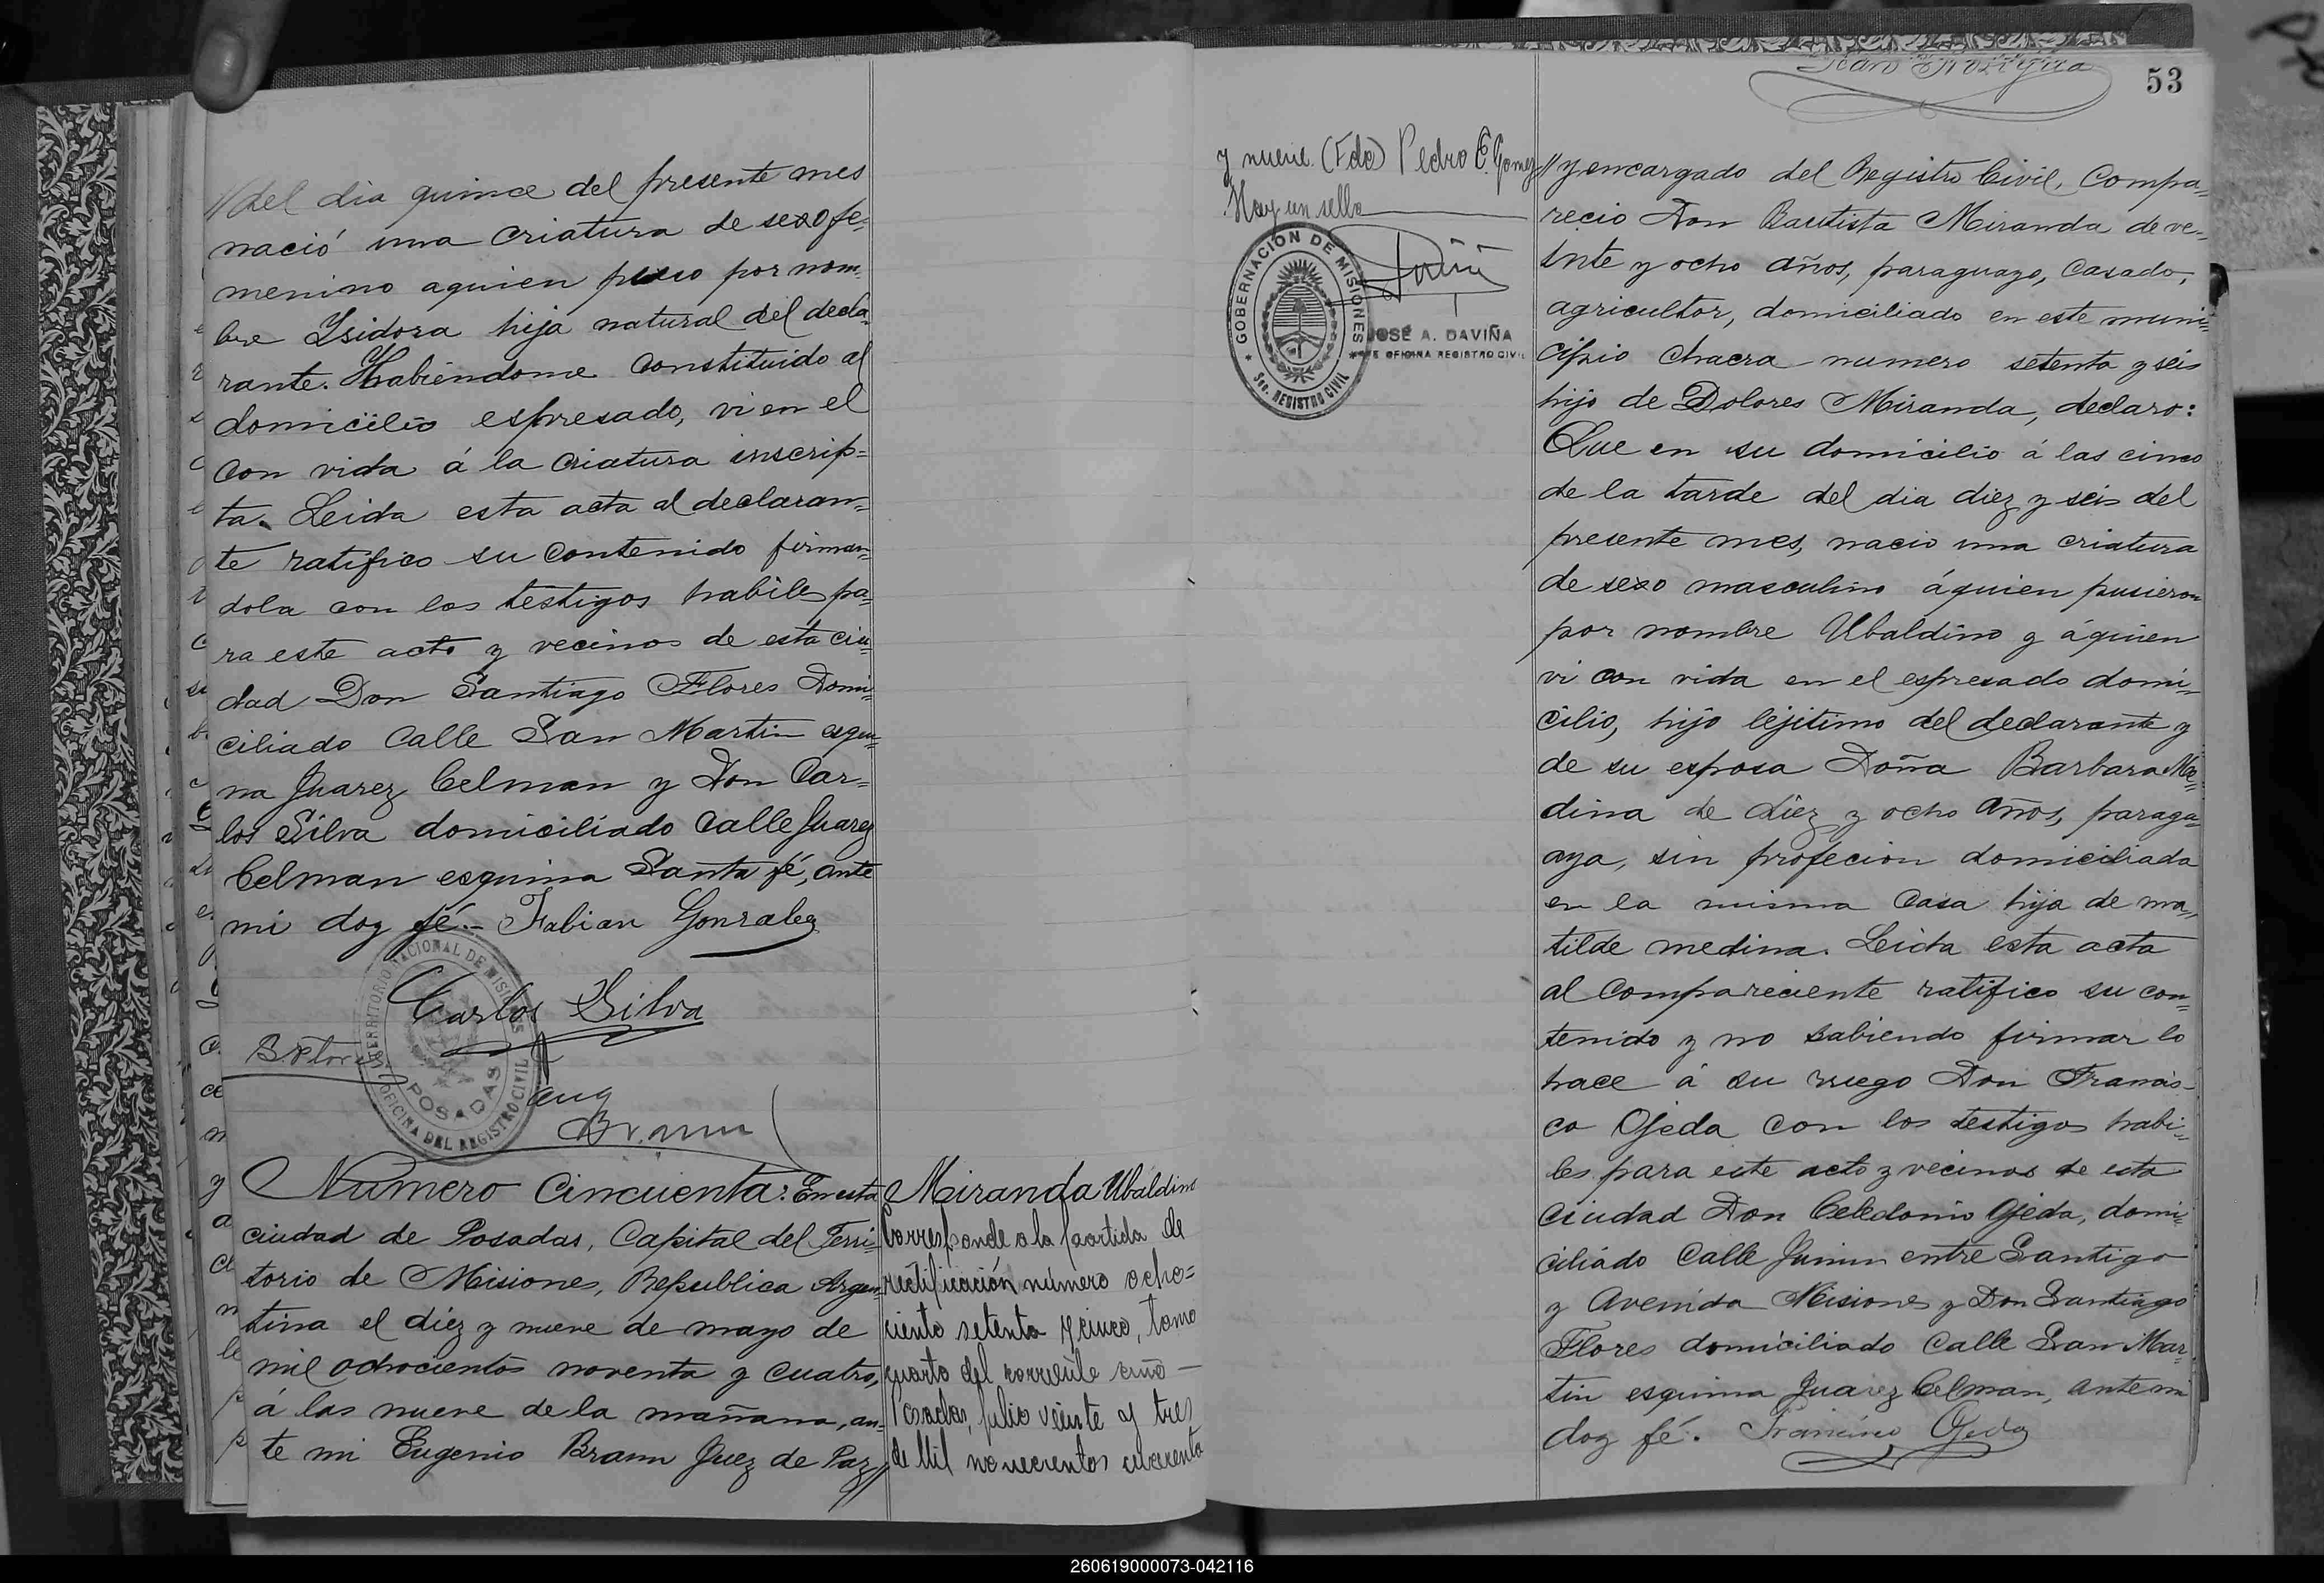 //del dia quince del presente mes
nació una criatura de sexo fe=
menino aquien puso por nom=
bre Ysidora hija natural del decla=
rante. Habiendome constituido al
domicilio espresado, vi en el
con vida á la criatura inscrip=
ta. Leida esta acta al declaran=
te ratifico su contenido firman=
dola con los testigos habiles pa=
ra este acto y vecinos de esta ciu=
dad Don Santiago Flores Domi=
ciliado Calle San Martin esqui=
na Juarez Celman y Don Car=
los Silva domiciliado Calle Juarez
Celman esquina Santa fé, ante
mi doy fé.- Fabian Gonzalez
Carlos Silva
TERRITORIO NACIONAL DE MISIONES
POSADAS
OFICINA DEL REGISTRO CIVIL
Eug
Braun
Numero Cincuenta: En esta
ciudad de Posadas, Capital del Terri=
torio de Misiones, Republica Argen=
tina el diez y nueve de mayo de
mil ochocientos noventa y cuatro,
á las nueve de la mañana, an=
te mi Eugenio Braun Juez de Paz//
Miranda Ubaldino
Corresponde a la partida de
rectificación número ocho=
ciento setenta y cinco, tomo
cuarto del corriente año —
Posadas, julio veinte y tres
de Mil novecientos cuarenta
y nueve. (Fdo) Pedro E. Gomez
Hay un sello
GOBERNACION DE MISIONES
Sec. REGISTRO CIVIL
JOSÉ A. DAVIÑA
JEFE OFICINA REGISTRO CIVIL
53
// y encargado del Registro Civil, Compa=
recio Don Bautista Miranda de ve=
inte y ocho años, paraguayo, casado,
agricultor, domiciliado en este muni=
cipio chacra numero setenta y seis
hijo de Dolores Miranda, declaro:
Que en su domicilio á las cinco
de la tarde del dia diez y seis del
presente mes, nacio una criatura
de sexo masculino áquien pusieron
por nombre Ubaldino y áquien
vi con vida en el espresado domi=
cilio, hijo lejitimo del declarante y
de su esposa Doña Barbara Me=
dina de diez y ocho años, paragu=
aya, sin profecion domiciliada
en la misma casa hija de ma=
tilde medina. Leida esta acta
al compareciente ratifico su con=
tenido y no sabiendo firmar lo
hace á su ruego Don Francis=
co Ojeda con los testigos habi=
les para este acto y vecinos de esta
ciudad Don Celedonio Ojeda, domi=
ciliado Calle Junin entre Santigo
y Avenida Misiones y Don Santiago
Flores domiciliado Calle San Mar=
tin esquina Juarez Celman, ante mi
doy fé. Francisco Ojeda
260619000073-042116